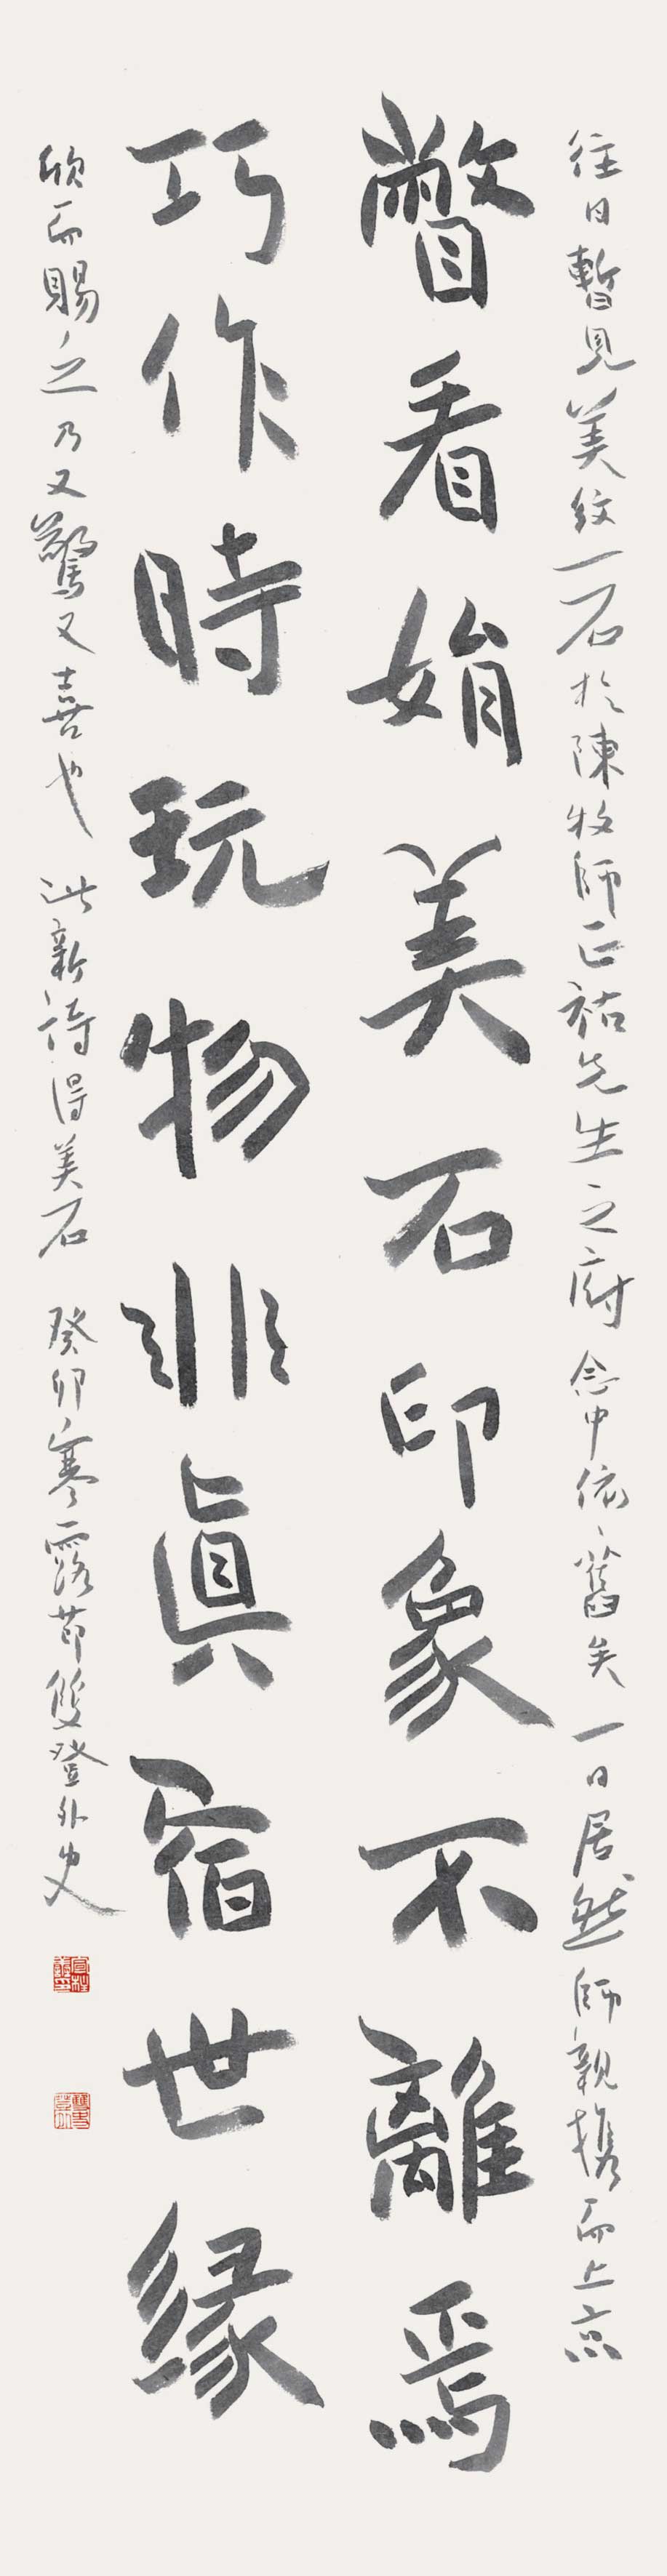 往日暫見美紋一石於陳牧師正祐先生之府念中依〻舊矣一日居然師親携而上京
瞥看娟美石印象不離焉
巧作時玩物非眞宿世緣
欣而賜之乃又驚又喜也 此新詩得美石 癸卯寒露節雙登外史